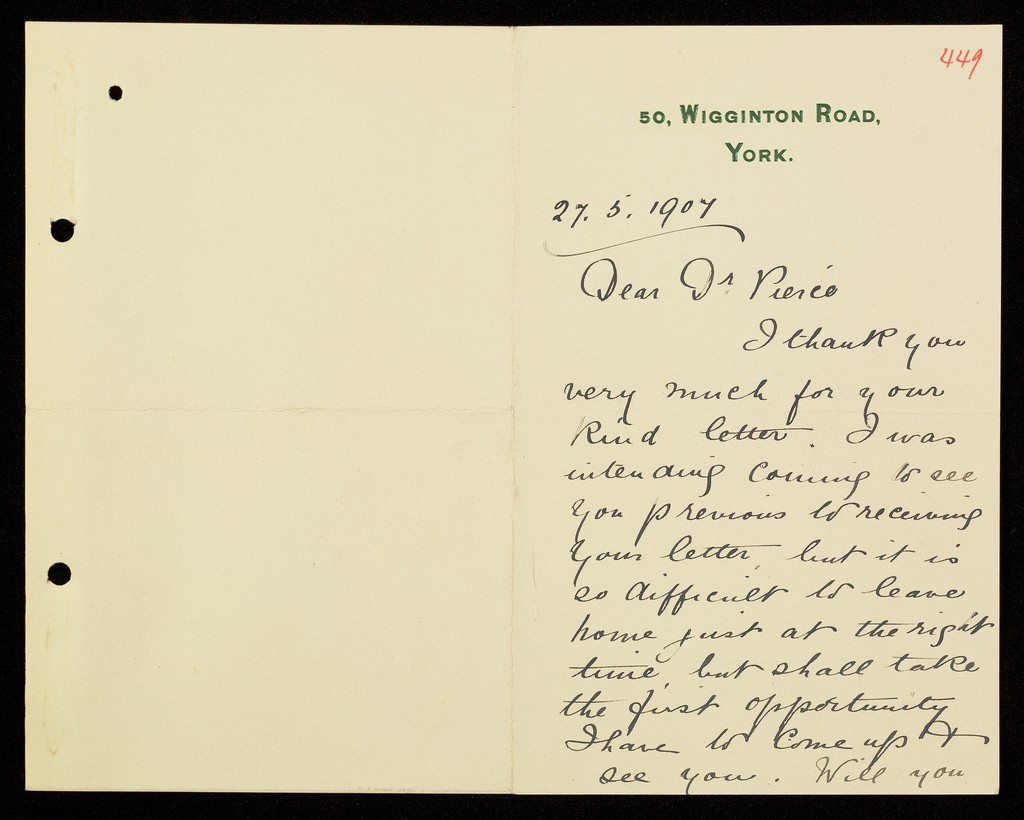 449
50, Wigginton Road,
York.
27. 5. 1907
Dear Dr Pierce
I thank you
very much for your
kind letter. I was
intending coming to see
you previous to receiving
your letter, but it is
so difficult to leave
home just at the right
time, but shall take
the first opportunity
I have to come up &
see you. Will you